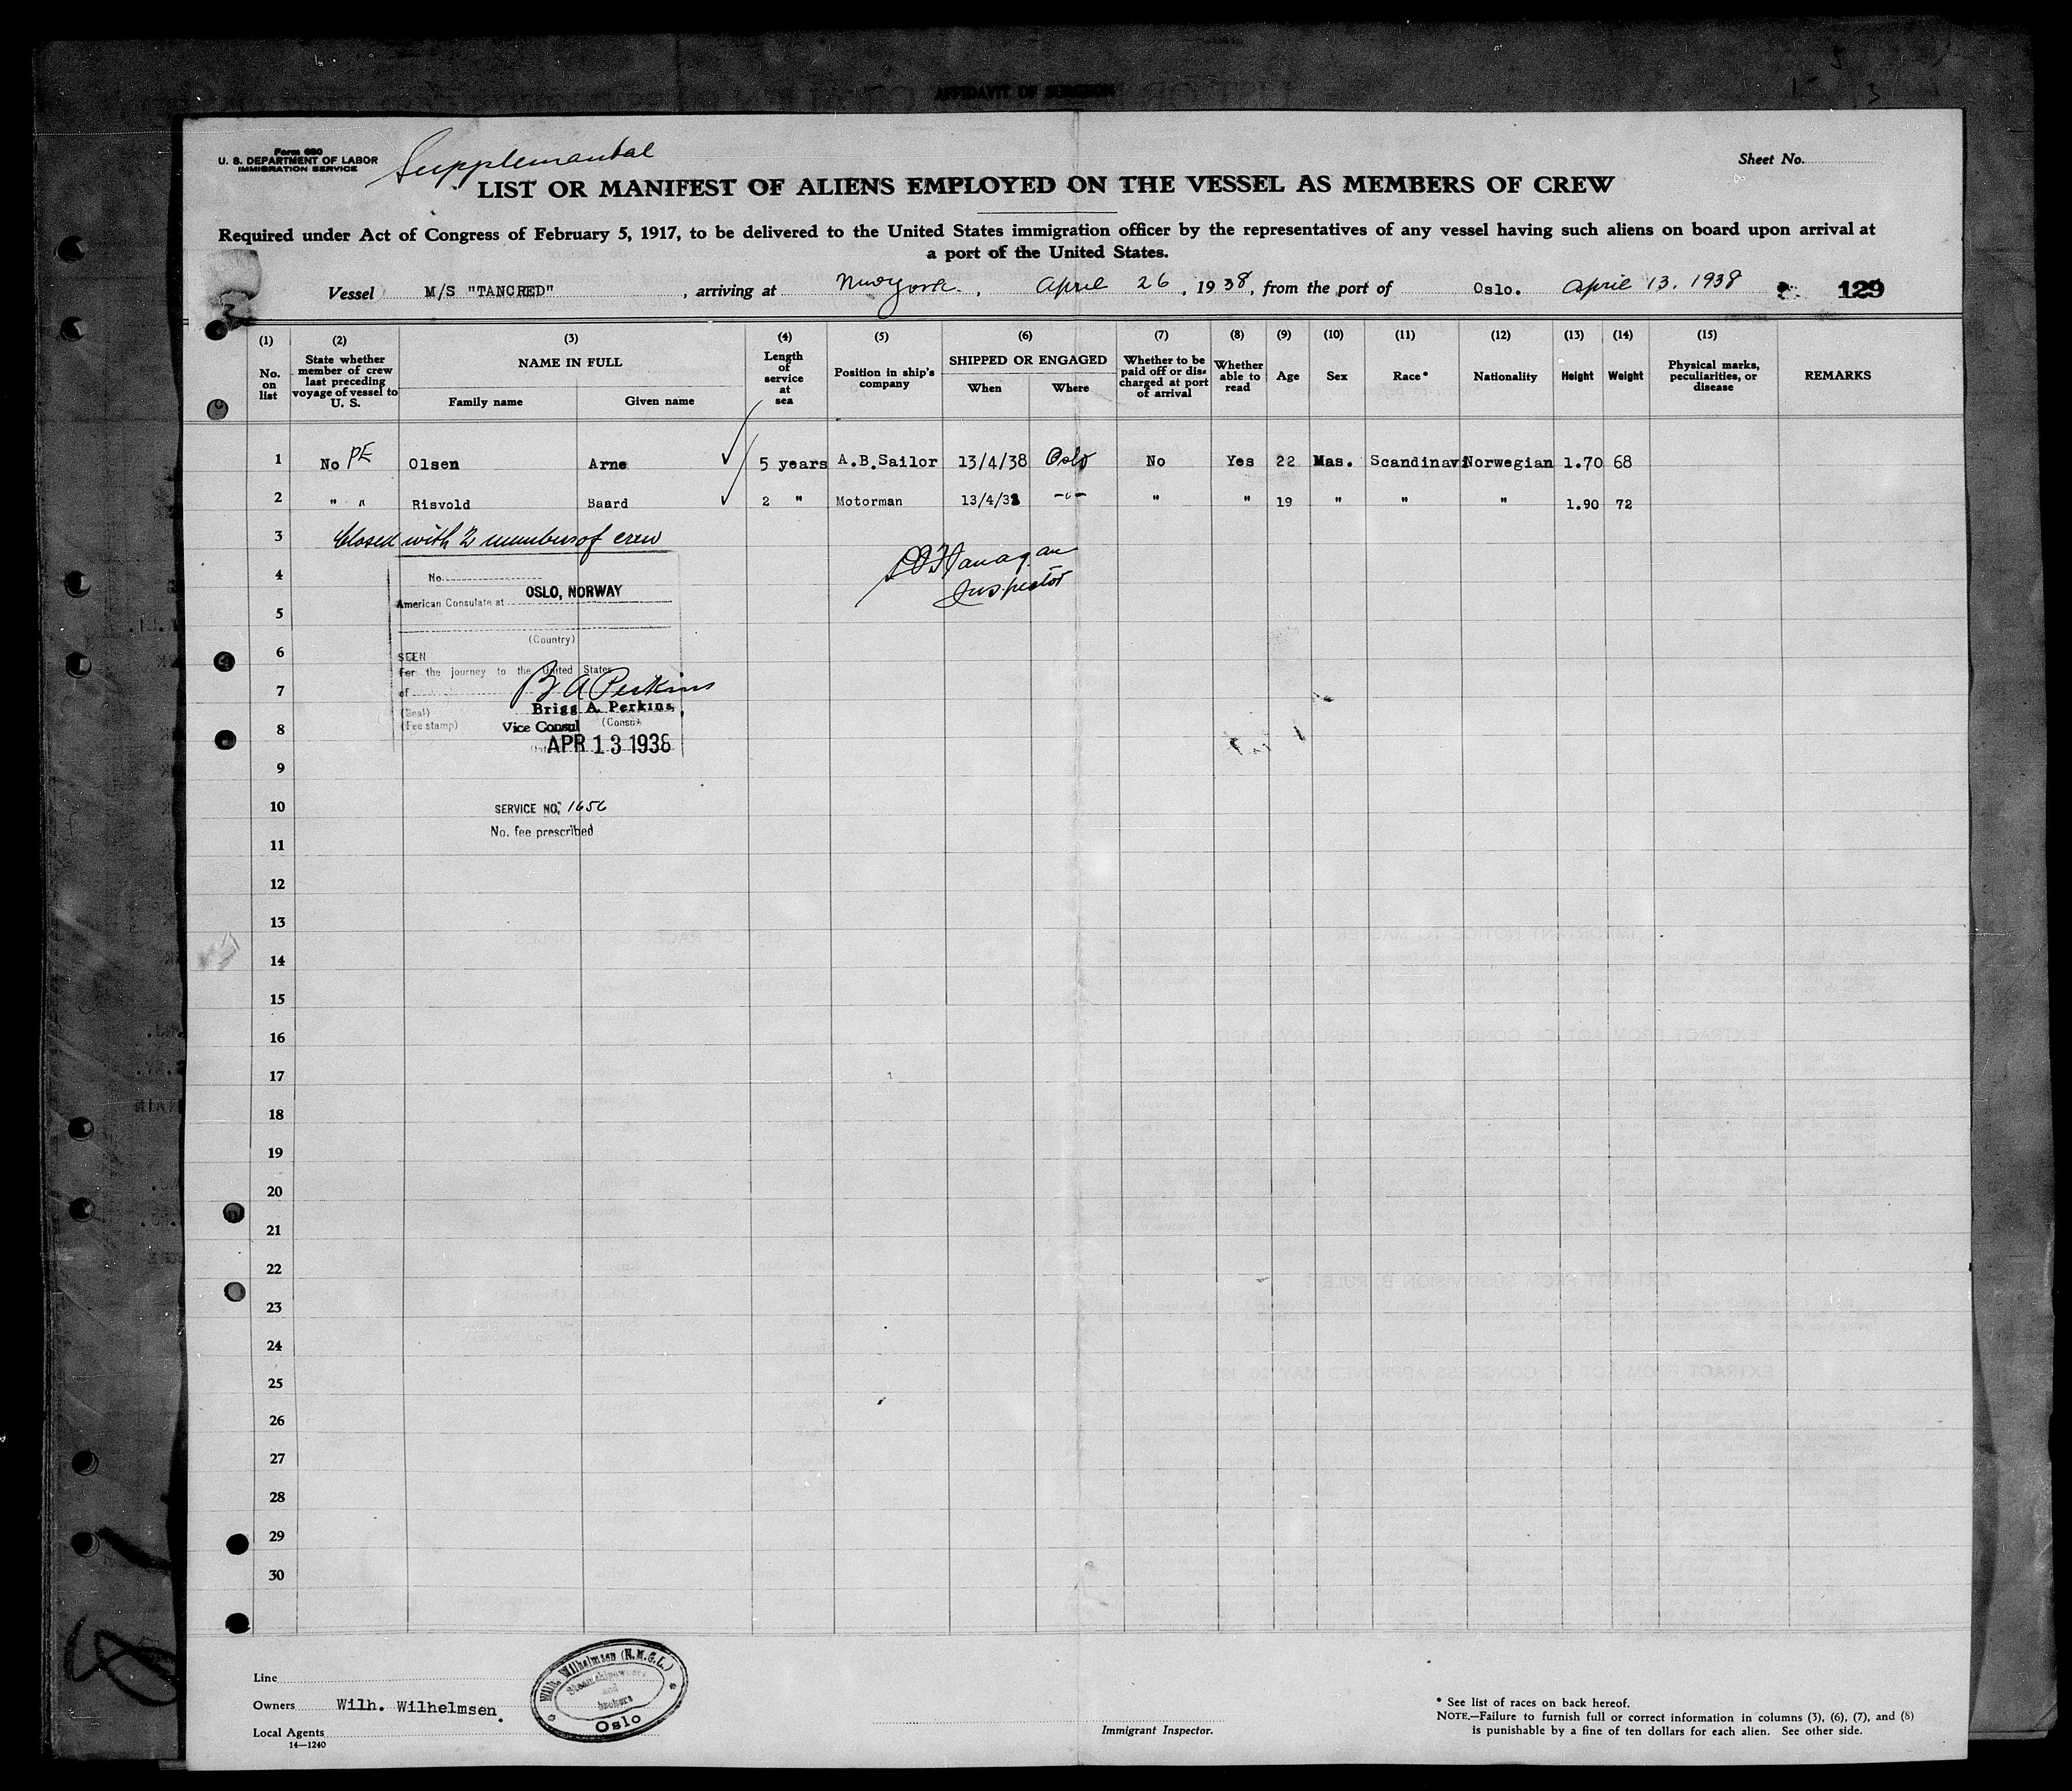 AFFIDAVIT OF SURGEON
Form 680
U. S. DEPARTMENT OF LABOR
IMMIGRATION SERVICE
Supplemental
Sheet No.
LIST OR MANIFEST OF ALIENS EMPLOYED ON THE VESSEL AS MEMBERS OF CREW
Required under Act of Congress of February 5, 1917, to be delivered to the United States immigration officer by the representatives of any vessel having such aliens on board upon arrival at
a port of the United States.
Vessel M/S "TANCRED", arriving at New York, April 26, 1938, from the port of Oslo. April 13, 1938 129
(1) (2) (3) (4) (5) (6) (7) (8) (9) (10) (11) (12) (13) (14) (15)
No. on list
State whether member of crew last preceding voyage of vessel to U. S.
NAME IN FULL
Family name
Given name
Length of service at sea
Position in ship's company
SHIPPED OR ENGAGED
When
Where
Whether to be paid off or discharged at port of arrival
Whether able to read
Age
Sex
Race*
Nationality
Height
Weight
Physical marks, peculiarities, or disease
REMARKS
1 No PE Olsen Arne 5 years A.B.Sailor 13/4/38 Oslo No Yes 22 Mas. Scandinavi Norwegian 1.70 68
2 " " Risvold Baard 2 " Motorman 13/4/38 -"- " " 19 " " " 1.90 72
3 Closed with 2 members of crew
Inspector
4
No.
American Consulate at OSLO, NORWAY
5
(Country)
6
SEEN
For the journey to the United States
7
of B A Perkins
(Seal) Brigg A. Perkins,
(Fee stamp) Vice Consul (Consul)
8
APR 13 1938
9
10
SERVICE NO. 1656
No. fee prescribed
11
12
13
14
15
16
17
18
19
20
21
22
23
24
25
26
27
28
29
30
Line
Owners Wilh. Wilhelmsen.
Local Agents
14—1240
Wilh. Wilhelmsen (N.M.G.L.)
Steamshipowners
and
brokers
Oslo
Immigrant Inspector.
* See list of races on back hereof.
NOTE.—Failure to furnish full or correct information in columns (3), (6), (7), and (8)
is punishable by a fine of ten dollars for each alien. See other side.